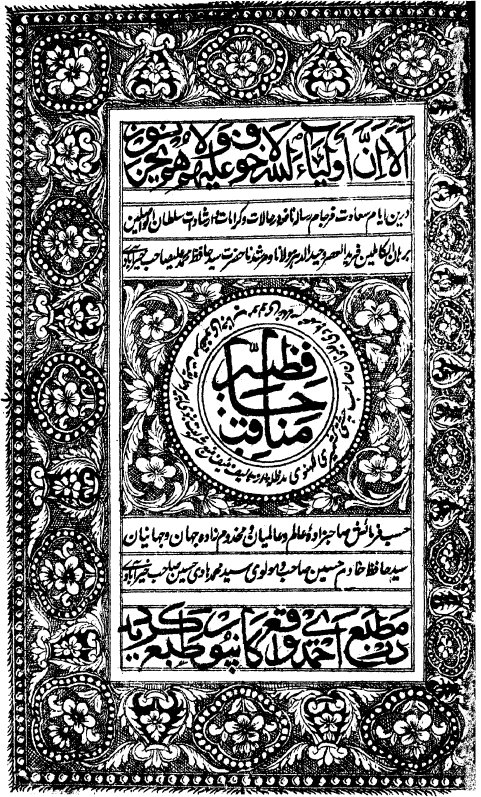 الا ان اولیاء الله لا خوف علیهم ولا هم یحزنون
درین ایام سعادت فرجام رساله نافعه در حالات و کرامات و ارشادات سلطان الواصلین
برهان الکاملین فرید العصر وحید الدهر مولانا و مرشدنا حضرت سید حافظ محمد علیصاحب خیرآبادی
مناقب حافظیه
حسب فرمائش صاحبزادهٔ عالم و عالمیان و مخدوم زادهٔ جهان و جهانیان
سید حافظ خادم حسین صاحب و مولوی سید محمد هادی حسین صاحب خیرآبادی
در مطبع احمدی واقع کانپور طبع گردید